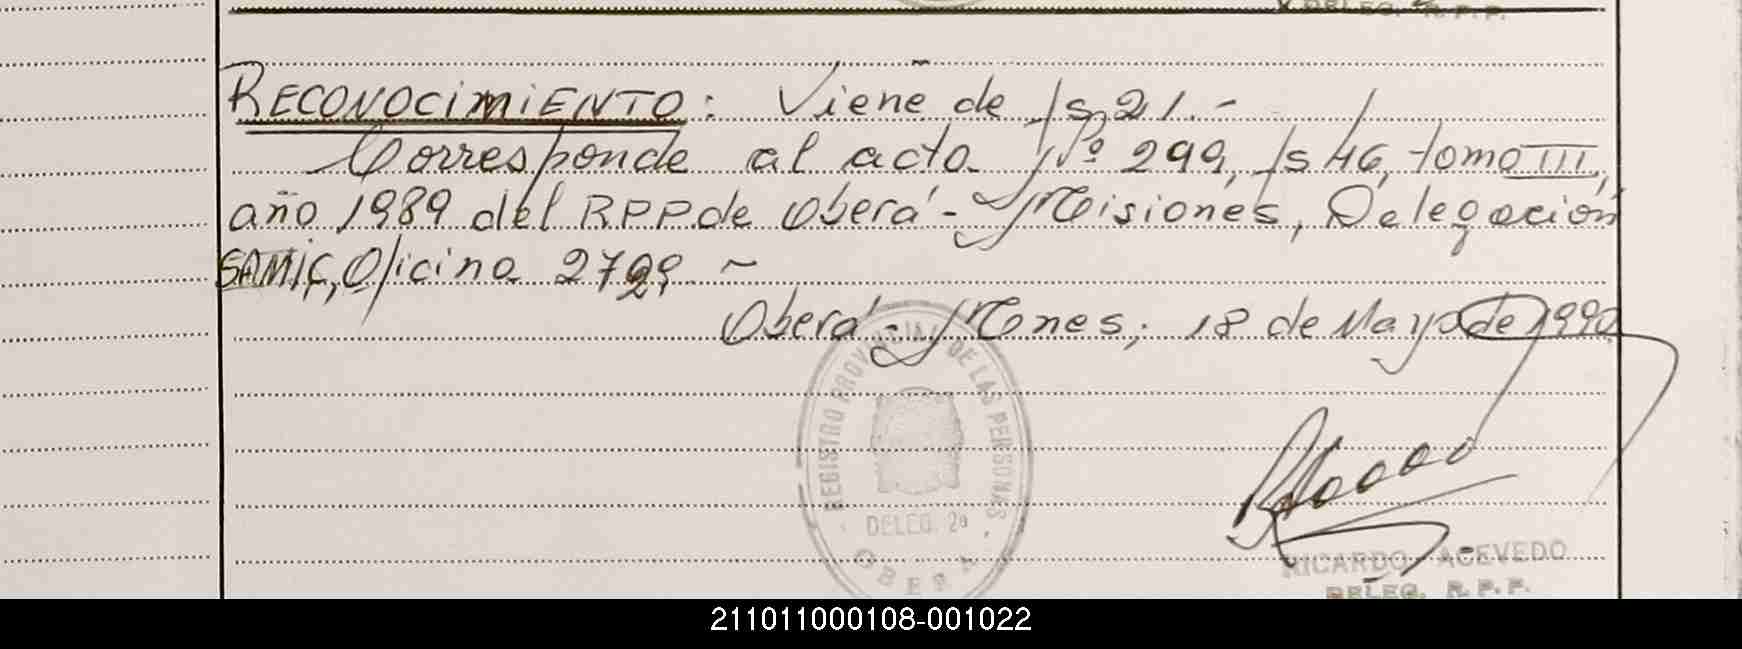 DELEG. R.P.P.
RECONOCIMIENTO: Viene de fs 21.-
Corresponde al acta Nº 299, fs 46, tomo III,
año 1989 del R.P.P. de Oberá - Misiones, Delegación
SAMIC, Oficina 2729 ~
Oberá - Mnes, 18 de Mayo de 1990
REGISTRO PROVINCIAL DE LAS PERSONAS
DELEG. 2a
OBERA
RICARDO ACEVEDO
DELEG. R.P.P.
211011000108-001022